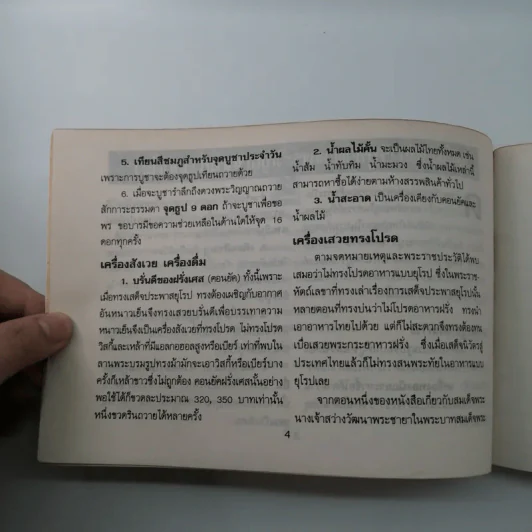 5. เทียนสีชมภูสำหรับจุดบูชาประจำวัน
เพราะการบูชาจะต้องจุดธูปเทียนถวายด้วย
6. เมื่อจะบูชารำลึกถึงดวงพระวิญญาณถวาย
สักการะธรรมดา จุดธูป 9 ดอก ถ้าจะบูชาเพื่อขอ
พร ขอบารมีขอความช่วยเหลือในด้านใดให้จุด 16
ดอกทุกครั้ง
เครื่องสังเวย เครื่องดื่ม
1. บรั่นดีของฝรั่งเศส (คอนยัค) ทั้งนี้เพราะ
เมื่อทรงเสด็จประพาสยุโรป ทรงต้องเผชิญกับอากาศ
อันหนาวเย็นจึงทรงเสวยบรั่นดีเพื่อบรรเทาความ
หนาวเย็นจึงเป็นเครื่องเสวยที่ทรงโปรด ไม่ทรงโปรด
วิสกี้และเหล้าที่มีแอลกอฮอลสูงหรือเบียร์ เท่าที่พบใน
ลานพระบรมรูปทรงม้ามักจะเอาวิสกี้หรือเบียร์บาง
ครั้งก็เหล้าขาวซึ่งไม่ถูกต้อง คอนยัคฝรั่งเศสนั้นอย่าง
พอใช้ได้ก็ขวดละประมาณ 320, 350 บาทเท่านั้น
หนึ่งขวดรินถวายได้หลายครั้ง
2. น้ำผลไม้คั้น จะเป็นผลไม้ไทยทั้งหมด เช่น
น้ำส้ม น้ำทับทิม น้ำมะมวง ซึ่งน้ำผลไม้เหล่านี้
สามารถหาซื้อได้ง่ายตามห้างสรรพสินค้าทั่วไป
3. น้ำสะอาด เป็นเครื่องเคียงกับคอนยัคและ
น้ำผลไม้
เครื่องเสวยทรงโปรด
ตามจดหมายเหตุและพระราชประวัติได้พบ
เสมอว่าไม่ทรงโปรดอาหารแบบยุโรป ซึ่งในพระราช-
หัตถ์เลขาที่ทรงเล่าเรื่องการเสด็จประพาสยุโรปนั้น
หลายตอนที่ทรงบ่นว่าไม่โปรดอาหารฝรั่ง ทรงนำ
เอาอาหารไทยไปด้วย แต่ก็ไม่สะดวกจึงทรงต้องทน
เบื่อเสวยพระกระยาหารฝรั่ง ซึ่งเมื่อเสด็จนิวัตรสู่
ประเทศไทยแล้วก็ไม่ทรงสนพระทัยในอาหารแบบ
ยุโรปเลย
จากตอนหนึ่งของหนังสือเกี่ยวกับสมเด็จพระ
นางเจ้าสว่างวัฒนาพระชายาในพระบาทสมเด็จพระ
4